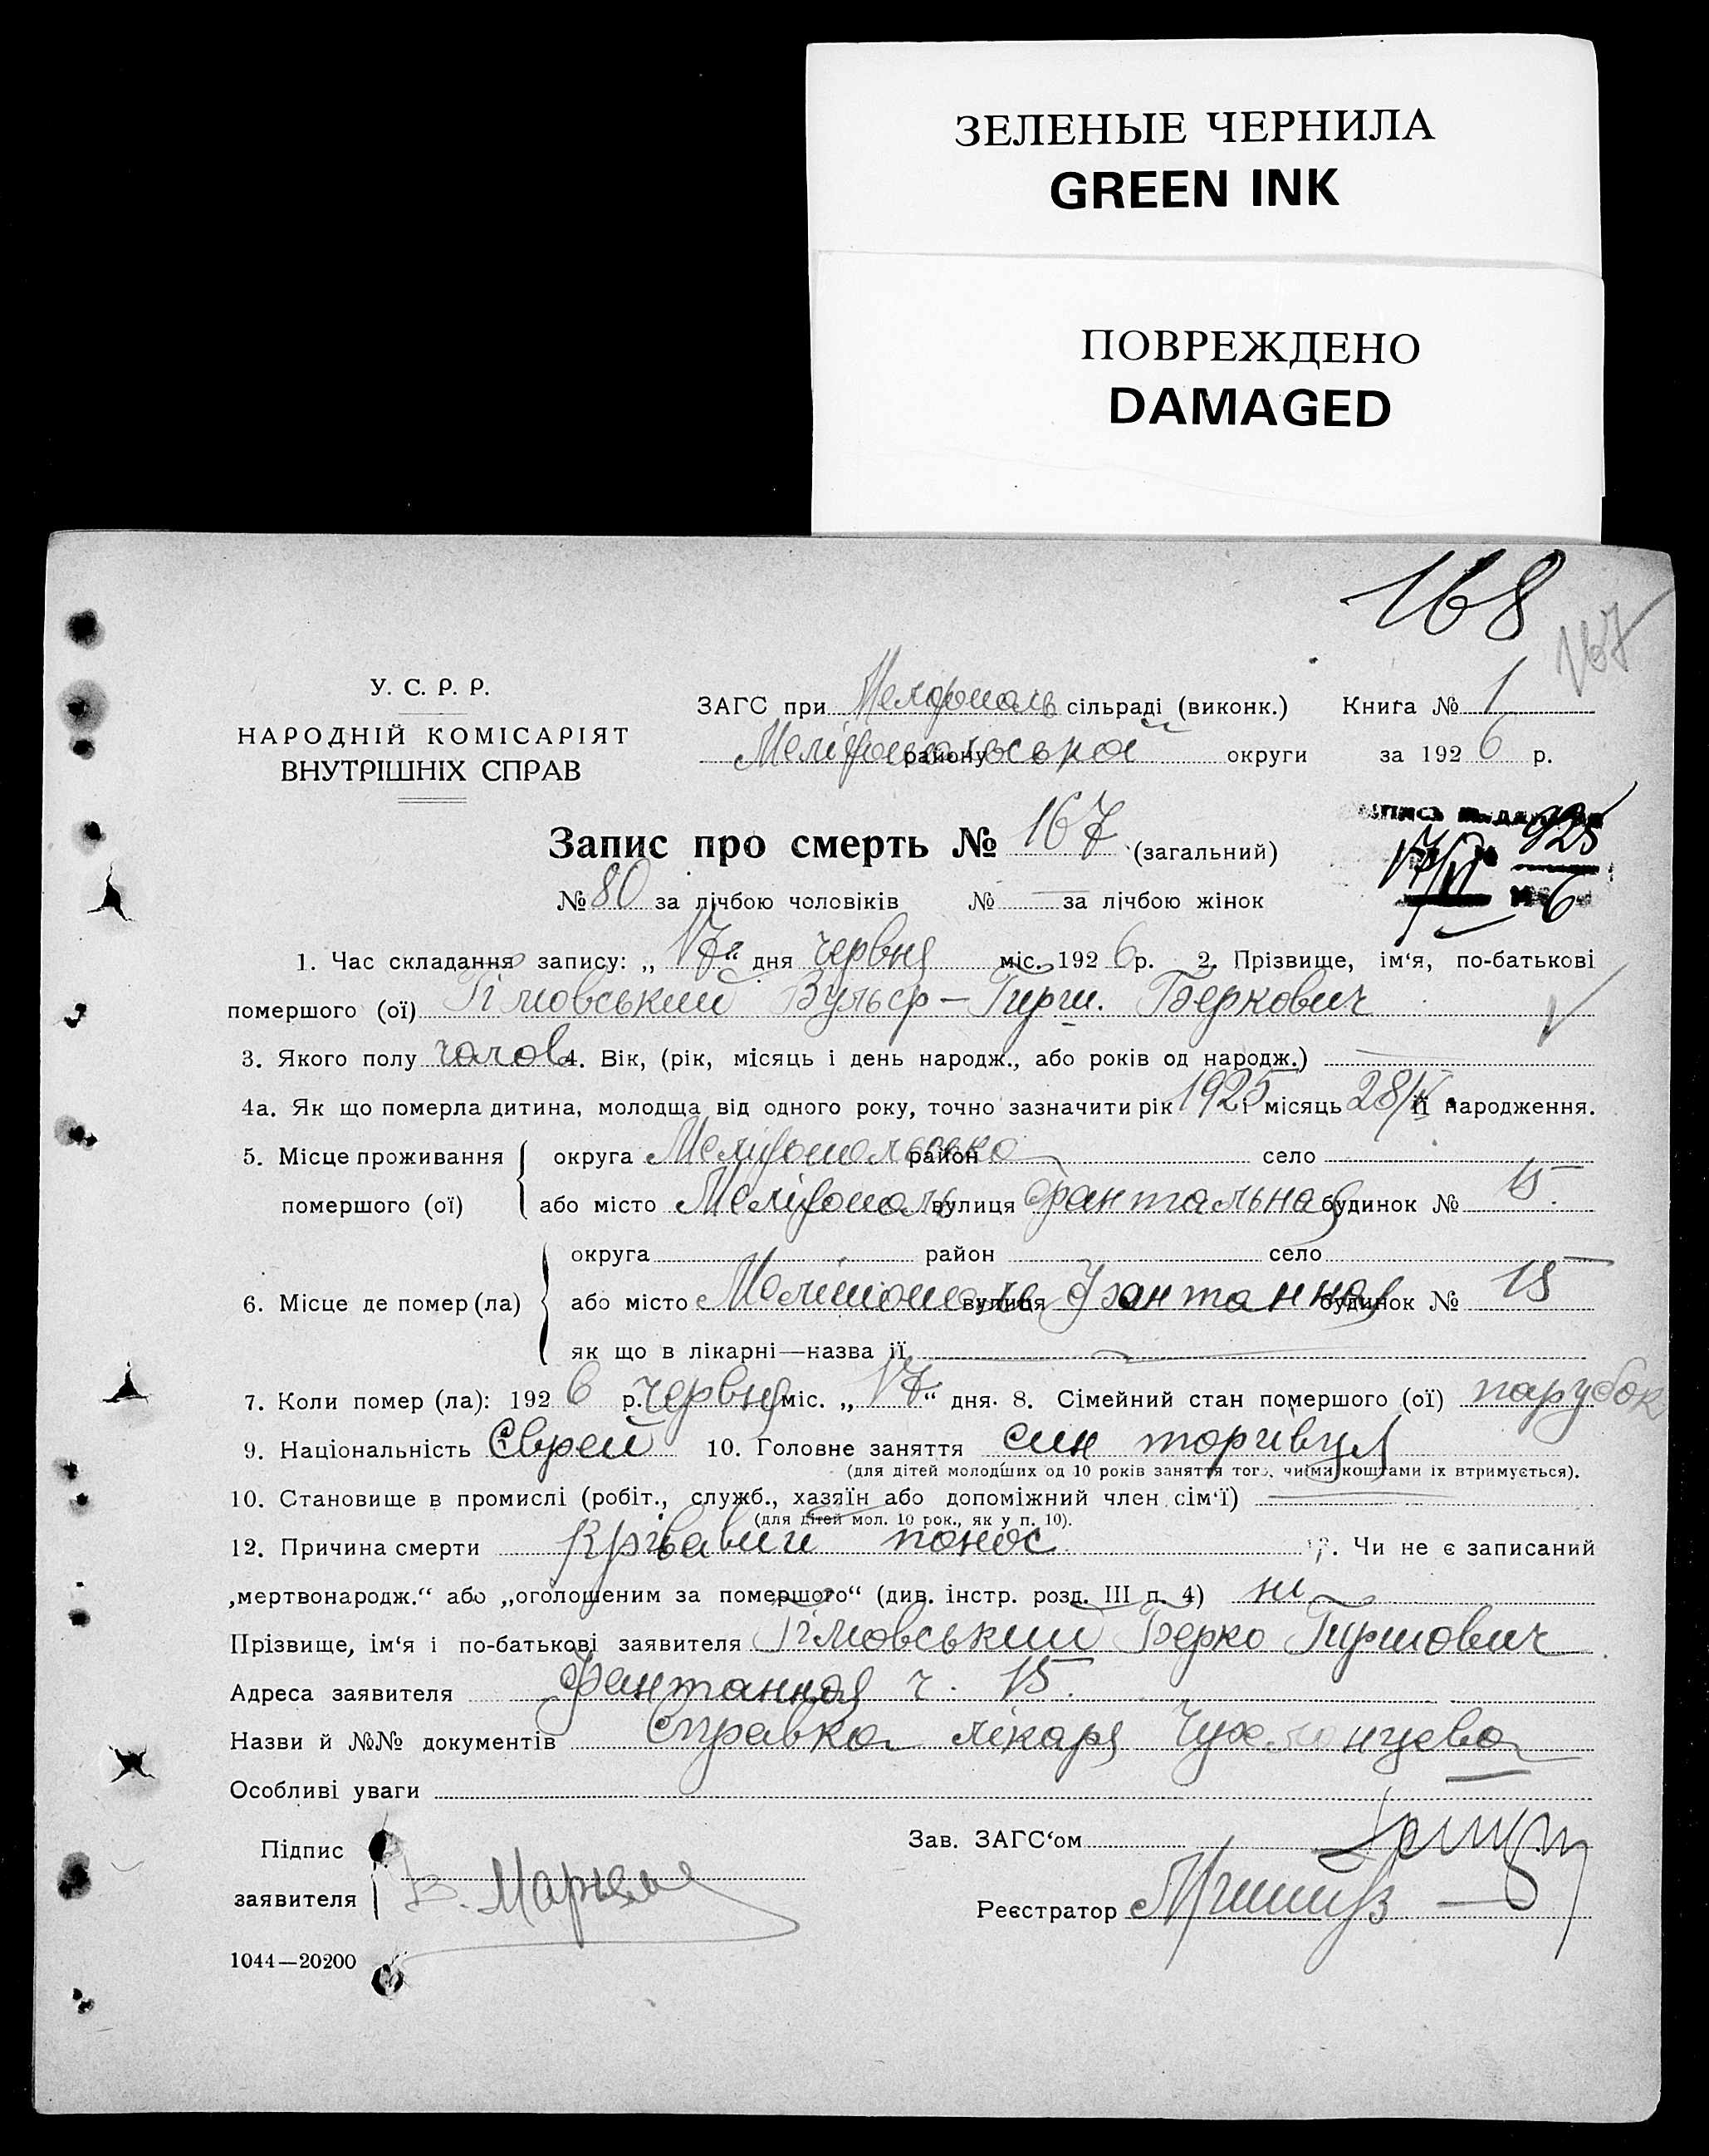 ЗЕЛЕНЫЕ ЧЕРНИЛА
GREEN INK
ПОВРЕЖДЕНО
DAMAGED
168
167
У. С. Р. Р.
НАРОДНІЙ КОМІСАРІЯТ
ВНУТРІШНІХ СПРАВ
ЗАГС при сільраді (виконк.) Книга № 1
району округи за 1926 р.
Запис про смерть № 167 (загальний)
925
№ 80 за лічбою чоловіків № — за лічбою жінок
1. Час складання запису: „17“ дня червня міс. 1926 р. 2. Прізвище, ім‘я, по-батькові
помершого (ої) Гірш. Беркович
3. Якого полу чолов 4. Вік, (рік, місяць і день народж., або років од народж.) —
4а. Як що померла дитина, молодща від одного року, точно зазначити рік 1925 і місяць 28/ її народження.
5. Місце проживання округа район село
помершого (ої) або місто Мелітополь вулиця будинок № 15.
округа район село
6. Місце де помер (ла) або місто Мелітополь вулиця Фонтанная будинок № 15
як що в лікарні—назва її —
7. Коли помер (ла): 1926 р. червня міс. „17“ дня. 8. Сімейний стан помершого (ої) парубок
9. Національність Єврей 10. Головне заняття син торгівця
(для дітей молодших од 10 років заняття того, чиїми коштами їх втримується).
10. Становище в промислі (робіт., служб., хазяїн або допоміжний член сім‘ї) —
(для дітей мол. 10 рок., як у п. 10).
12. Причина смерти крівавий понос 13. Чи не є записаний
„мертвонародж.“ або „оголошеним за помершого“ (див. інстр. розд. III п. 4) ні
Прізвище, ім‘я і по-батькові заявителя Берко Гіршович
Адреса заявителя Фантанная ч. 15.
Назви й №№ документів Справка лікаря
Особливі уваги
Підпис
заявителя
Зав. ЗАГС‘ом
Реєстратор
1044—20200